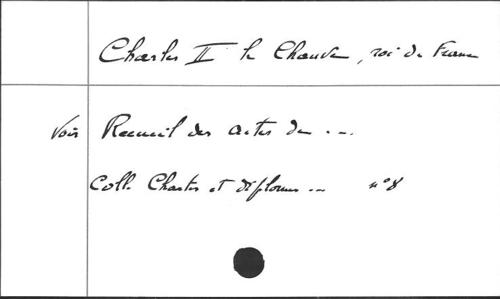 Charles II le Chauve, roi de France
Voir Recueil des actes de ...
Coll. Chartes et diplomes ... n° 8